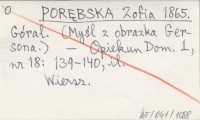 O PORĘBSKA Zofia 1865.
Góral. (Myśl z obrazka Ger-
sona.) — Opiekun Dom. 1,
nr 18: 139-140, il.
Wiersz.